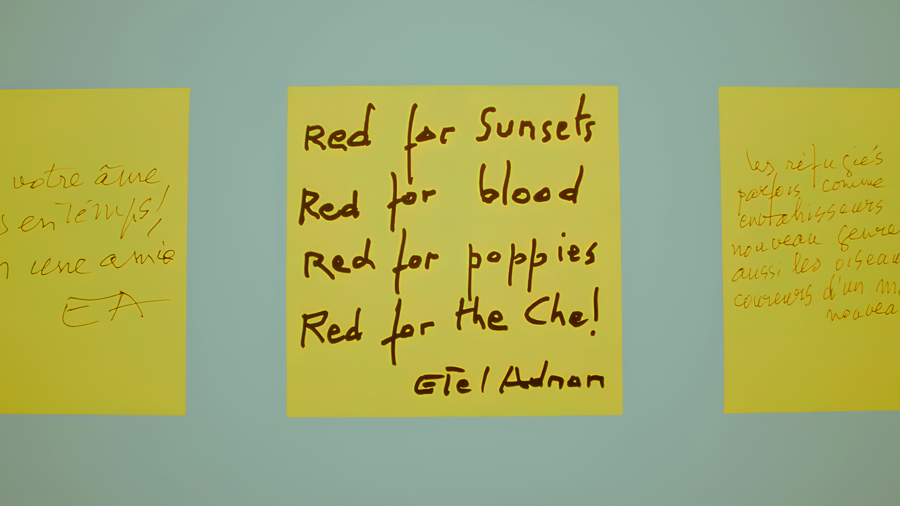 votre âme
en Témps!
une amie
EA
Red for Sunsets
Red for blood
Red for poppies
Red for the Che!
Etel Adnan
les réfugiés
parfois comme
envahisseurs
nouveau genre
aussi les oiseau
coureurs d'un
nouveau